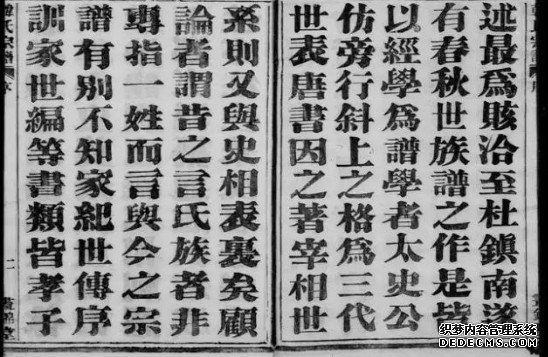 述最爲賅洽至杜鎮南遂
有春秋世族譜之作是皆
以經學爲譜學者太史公
仿旁行斜上之格爲三代
世表唐書因之著宰相世
系則又與史相表裏矣顧
論者謂昔之言氏族者非
專指一姓而言與今之宗
譜有別不知家紀世傳序
訓家世編等書類皆孝子
氏宗譜
二
织梦内容管理系统
DEDECMS.COM